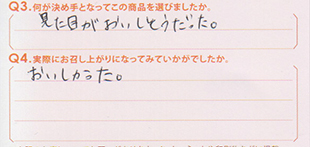 Q3.何が決め手となってこの商品を選びましたか。
見た目がおいしそうだった。
Q4.実際にお召し上がりになってみていかがでしたか。
おいしかった。